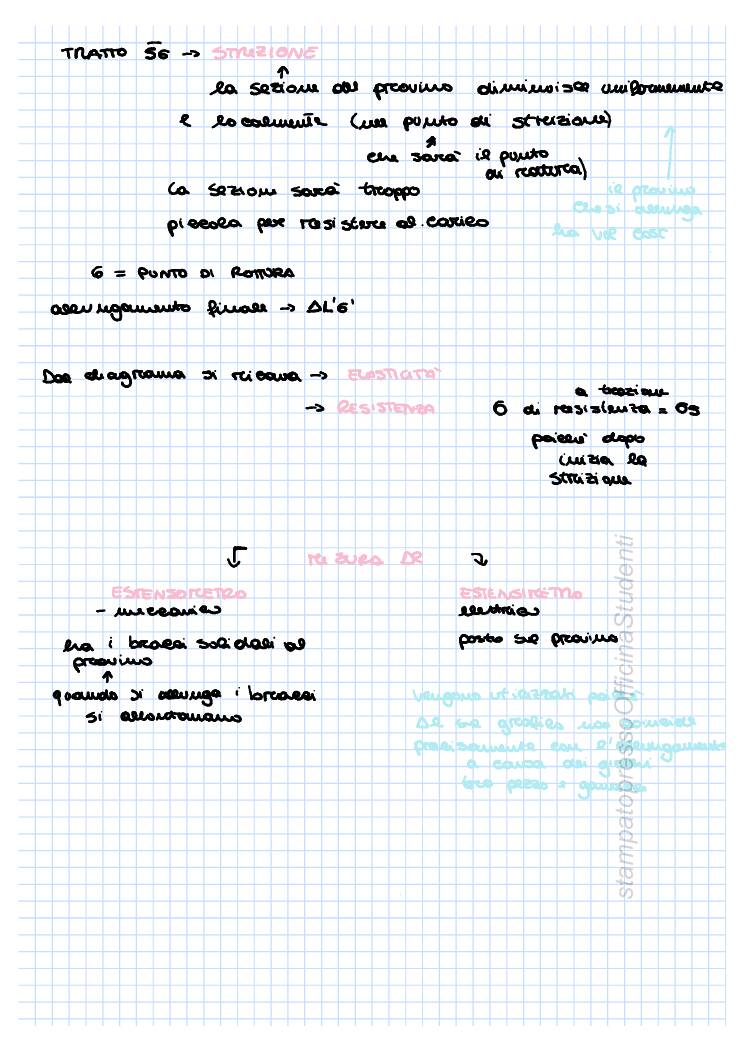 TRATTO 56 → STRIZIONE
la sezione del provino diminuisce uniformemente
e localmente (nel punto di strizione)
che sarà il punto
di rottura)
la sezione sarà troppo
piccola per resistere al carico
il provino
che si allunga
ha vol cost
6 = PUNTO DI ROTTURA
allungamento finale → ΔL'6'
Dal diagramma si ricava → ELASTICITÀ
→ RESISTENZA
a trazione
σ di resistenza = σ5
poiché dopo
inizia la
strizione
MISURA Δl
ESTENSOMETRO
- meccanico
ha i bracci solidali al
provino
quando si allunga i bracci
si allontanano
ESTENSIMETRO
elettrico
posto sul provino
vengono utilizzati poiché
Δl sul grafico non coincide
precisamente con l'allungamento
a causa dei giochi
tra pezzo e
stampatopressoOfficinaStudenti